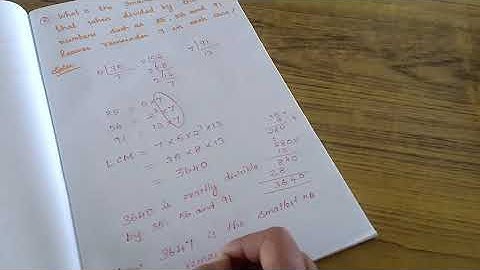 What is the
that when divided by
numbers such as 35, 56 and 91
leaves remainder 7 in each case?
Soln:
5 | 35
7
2 | 56
2 | 28
2 | 14
7
7 | 91
13
35 = 5 × 7
56 = 2³ × 7
91 = 13 × 7
LCM = 7 × 5 × 2³ × 13
= 35 × 8 × 13
= 3640
280 ×
13
840
28
3640
3640 is exactly divisible
by 35, 56 and 91
3647 is the smallest no